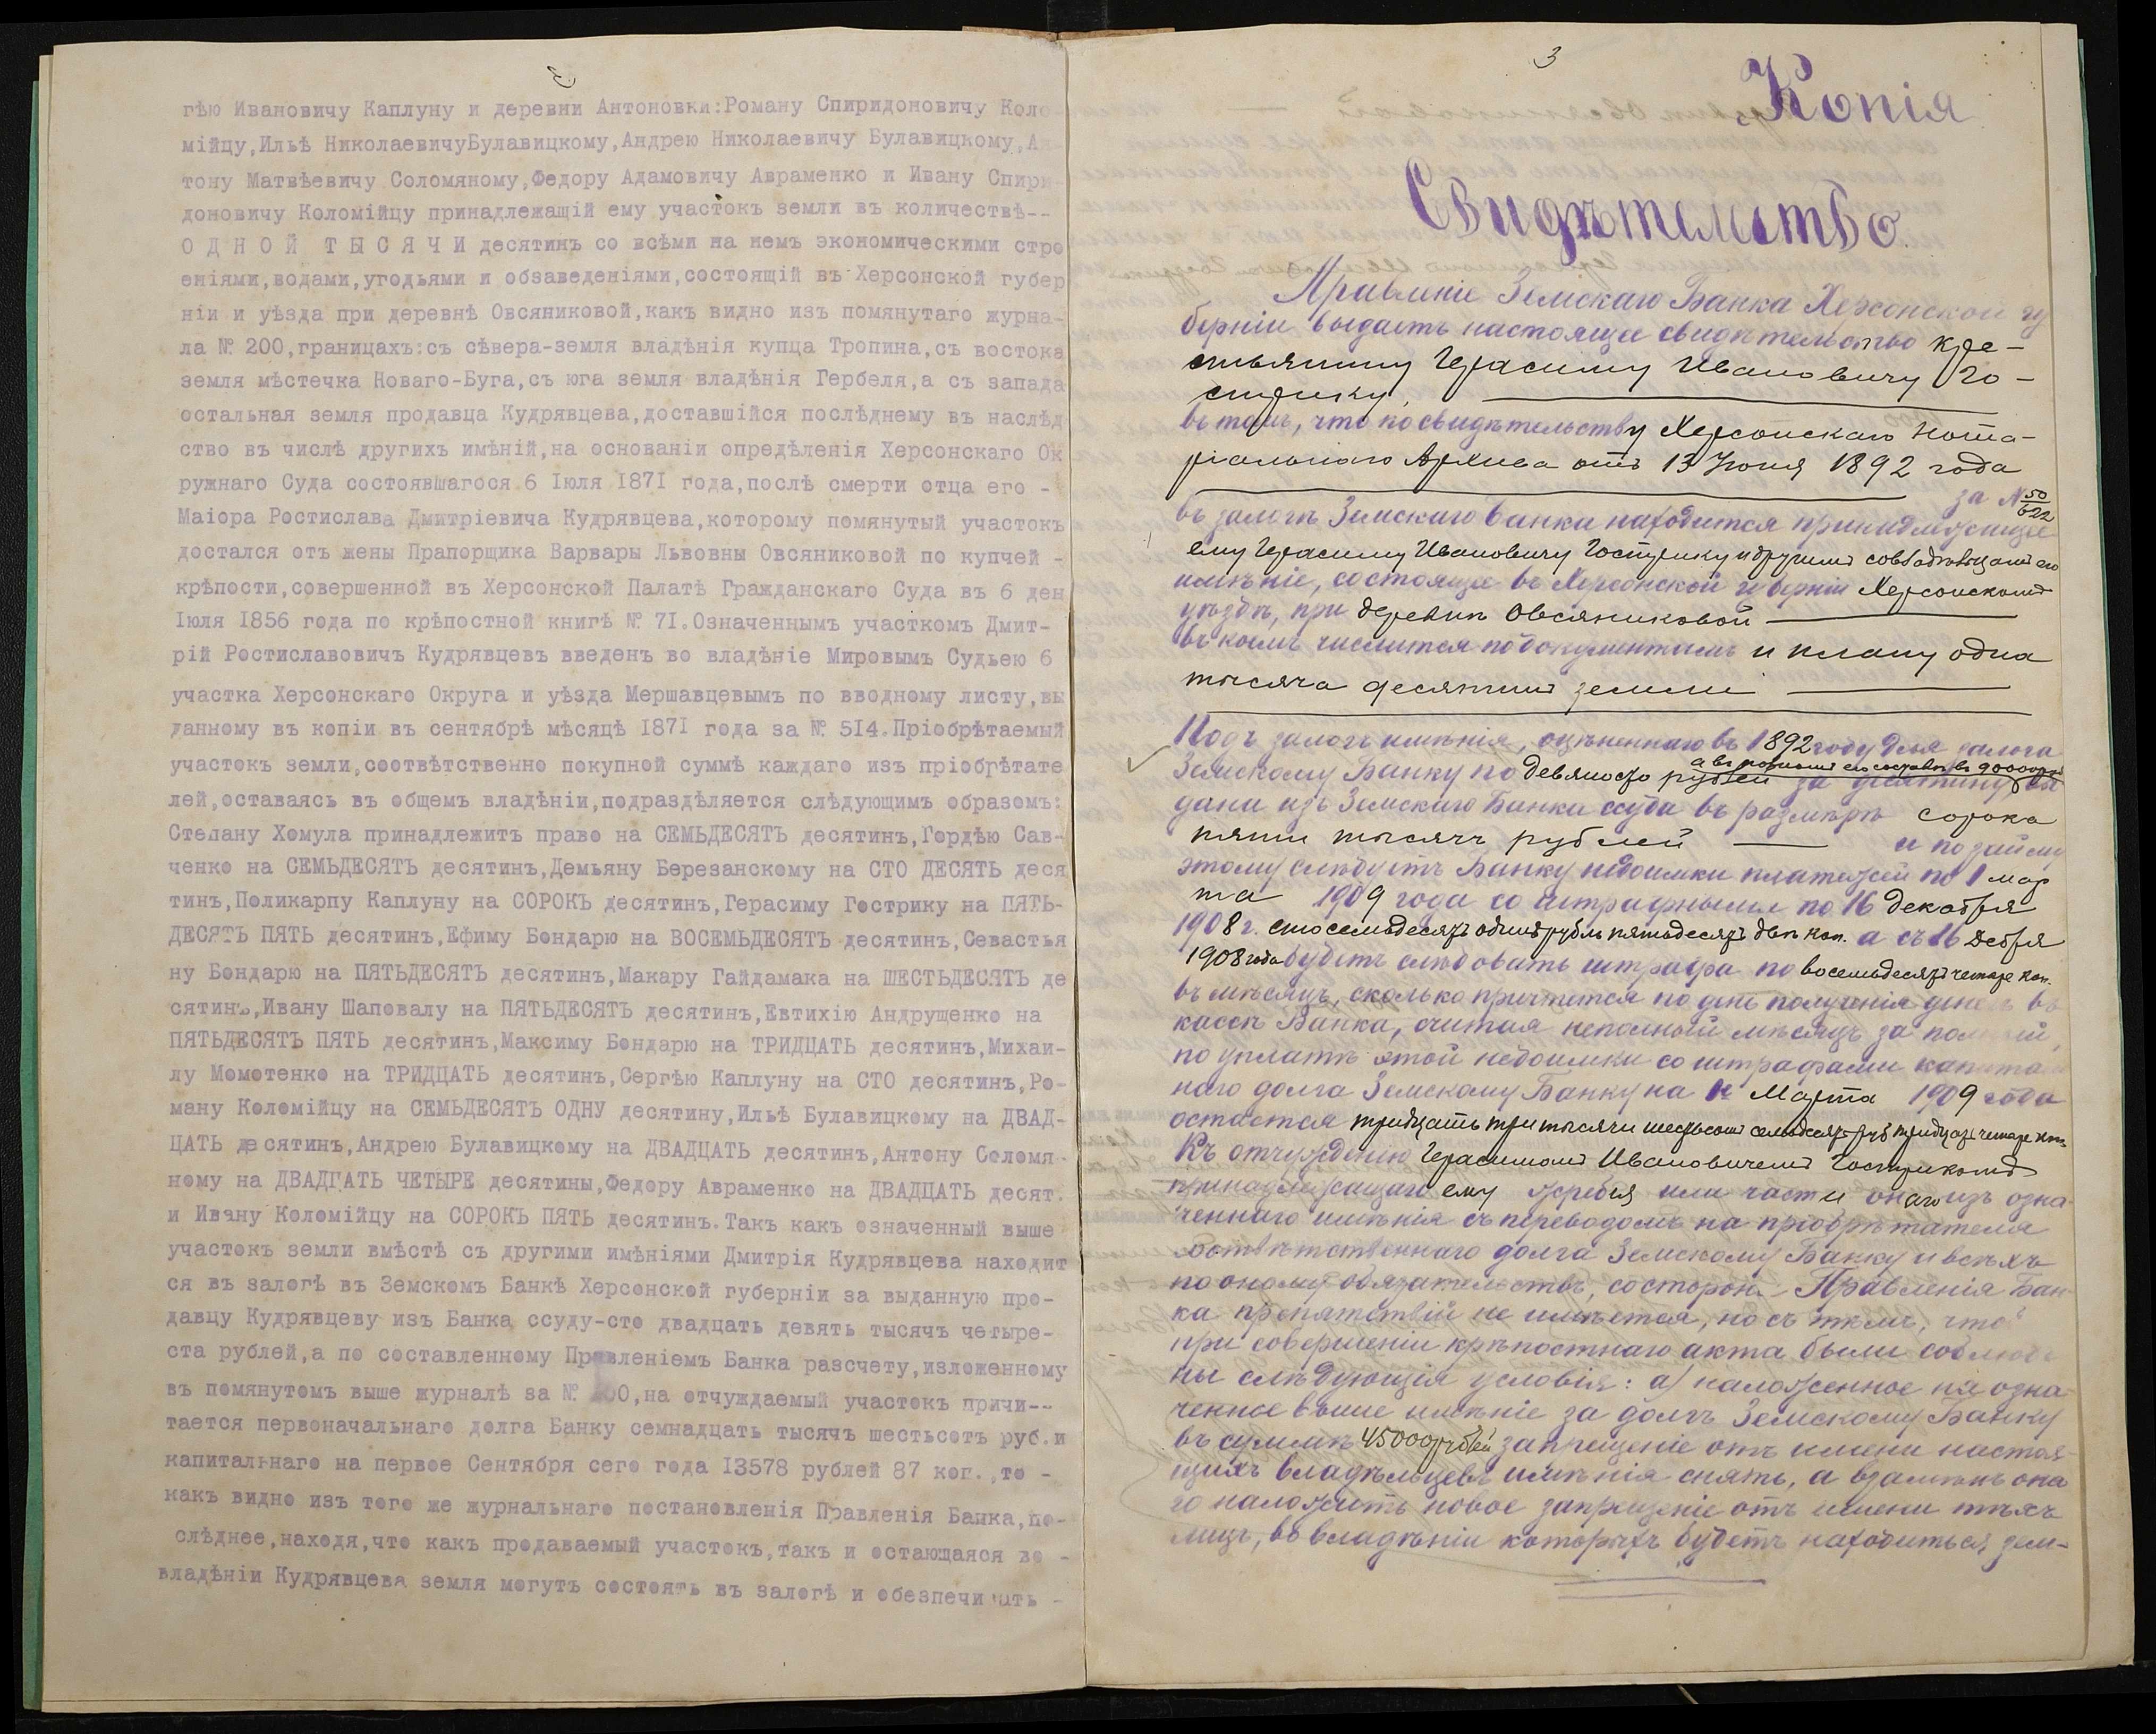 гѣю Ивановичу Каплуну и деревни Антоновки:Роману Спиридоновичу Коло
мійцу,Ильѣ НиколаевичуБулавицкому,Андрею Николаевичу Булавицкому,Ан
тону Матвѣевичу Соломяному,Федору Адамовичу Авраменко и Ивану Спири-
доновичу Коломійцу принадлежащій ему участокъ земли въ количествѣ--
О Д Н О Й Т Ы С Я Ч И десятинъ со всѣми на немъ экономическими стро
еніями,водами,угодьями и обзаведеніями,состоящій въ Херсонской губер
ніи и уѣзда при деревнѣ Овсяниковой,какъ видно изъ помянутаго журна-
ла № 200,границахъ:съ сѣвера-земля владѣнія купца Тропина,съ востока
земля мѣстечка Новаго-Буга,съ юга земля владѣнія Гербеля,а съ запада
остальная земля продавца Кудрявцева,доставшійся послѣднему въ наслѣд
ство въ числѣ другихъ имѣній,на основаніи опредѣленія Херсонскаго Ок
ружнаго Суда состоявшагося 6 Іюля 1871 года,послѣ смерти отца его -
Маіора Ростислава Дмитріевича Кудрявцева,которому помянутый участокъ
достался отъ жены Прапорщика Варвары Львовны Овсяниковой по купчей -
крѣпости,совершенной въ Херсонской Палатѣ Гражданскаго Суда въ 6 ден
Іюля 1856 года по крѣпостной книгѣ № 71.Означеннымъ участкомъ Дмит-
рій Ростиславовичъ Кудрявцевъ введенъ во владѣніе Мировымъ Судьею 6
участка Херсонскаго Округа и уѣзда Мершавцевымъ по вводному листу,вы
данному въ копіи въ сентябрѣ мѣсяцѣ 1871 года за № 514.Пріобрѣтаемый
участокъ земли,соотвѣтственно покупной суммѣ каждаго изъ пріобрѣтате
лей,оставаясь въ общемъ владѣніи,подраздѣляется слѣдующимъ образомъ:
Степану Хомула принадлежитъ право на СЕМЬДЕСЯТЪ десятинъ,Гордѣю Сав-
ченко на СЕМЬДЕСЯТЪ десятинъ,Демьяну Березанскому на СТО ДЕСЯТЬ деся
тинъ,Поликарпу Каплуну на СОРОКЪ десятинъ,Герасиму Гострику на ПЯТЬ-
ДЕСЯТЪ ПЯТЬ десятинъ,Ефиму Бондарю на ВОСЕМЬДЕСЯТЪ десятинъ,Севастья
ну Бондарю на ПЯТЬДЕСЯТЪ десятинъ,Макару Гайдамака на ШЕСТЬДЕСЯТЪ де
сятинъ,Ивану Шаповалу на ПЯТЬДЕСЯТЪ десятинъ,Евтихію Андрущенко на
ПЯТЬДЕСЯТЪ ПЯТЬ десятинъ,Максиму Бондарю на ТРИДЦАТЬ десятинъ,Михаи-
лу Момотенко на ТРИДЦАТЬ десятинъ,Сергѣю Каплуну на СТО десятинъ,Ро-
ману Коломійцу на СЕМЬДЕСЯТЪ ОДНУ десятину,Ильѣ Булавицкому на ДВАД-
ЦАТЬ десятинъ,Андрею Булавицкому на ДВАДЦАТЬ десятинъ,Антону Соломя-
ному на ДВАДЦАТЬ ЧЕТЫРЕ десятины,Федору Авраменко на ДВАДЦАТЬ десят.
и Ивану Коломійцу на СОРОКЪ ПЯТЬ десятинъ.Такъ какъ означенный выше
участокъ земли вмѣстѣ съ другими имѣніями Дмитрія Кудрявцева находит
ся въ залогѣ въ Земскомъ Банкѣ Херсонской губерніи за выданную про-
давцу Кудрявцеву изъ Банка ссуду-сто двадцать девять тысячъ четыре-
ста рублей,а по составленному Правленіемъ Банка разсчету,изложенному
въ помянутомъ выше журналѣ за № 200,на отчуждаемый участокъ причи--
тается первоначальнаго долга Банку семнадцать тысячъ шестьсотъ руб.и
капитальнаго на первое Сентября сего года 13578 рублей 87 коп.,то -
какъ видно изъ того же журнальнаго постановленія Правленія Банка,по-
слѣднее,находя,что какъ продаваемый участокъ,такъ и остающаяся во -
владѣніи Кудрявцева земля могутъ состоять въ залогѣ и обезпечивать -
3
Копія
Свидѣтельство.
Правленіе Земскаго Банка Херсонской гу
берніи выдаетъ настоящее свидѣтельство кре-
стьянину Герасиму Ивановичу Го-
стрику,
въ томъ, что по свидѣтельству Херсонскаго Нота-
ріальнаго Архива отъ 13 Іюня 1892 года
за № 50/622
въ залогѣ Земскаго Банка находится принадлежащее
ему Герасиму Ивановичу Гострику и другимъ совладѣльцамъ его
имѣніе, состоящее въ Херсонской губерніи Херсонскомъ
уѣздѣ, при деревнѣ Овсяниковой
въ коемъ числится по документамъ и плану одна
тысяча десятинъ земли
Подъ залогъ имѣнія, оцѣненнаго въ 1892 году для залога
а въ полномъ его составѣ въ 90000 руб
Земскому Банку по девяносто рублей за десятину, вы
дана изъ Земскаго Банка ссуда въ размѣрѣ сорока
пяти тысячъ рублей и по займу
этому слѣдуетъ Банку недоимки платежей по 1 мар
та 1909 года со штрафными по 16 декабря
1908 г. сто семьдесятъ одинъ рубль пятьдесятъ двѣ коп. а съ 16 Декбря
1908 года будетъ слѣдовать штрафа по восемьдесятъ четыре коп.
въ мѣсяцъ, сколько причтется по день полученія денегъ въ
кассѣ Банка, считая неполный мѣсяцъ за полный,
по уплатѣ этой недоимки со штрафами капиталь
наго долга Земскому Банку на 1е Марта 1909 года
остается тридцать три тысячи шестьсотъ семьдесятъ руб тридцать четыре коп.
Къ отчужденію Герасимомъ Ивановичемъ Гострикомъ
принадлежащаго ему жребія или части онаго изъ озна-
ченнаго имѣнія съ переводомъ на пріобрѣтателя
соотвѣтственнаго долга Земскому Банку и всѣхъ
по оному обязательствъ, со стороны Правленія Бан-
ка препятствій не имѣется, но съ тѣмъ, чтобъ
при совершеніи крѣпостнаго акта были соблюде
ны слѣдующія условія: а) наложенное на озна-
ченное выше имѣніе за долгъ Земскому Банку
въ суммѣ 45000 рублей запрещеніе отъ имени настоя-
щихъ владѣльцевъ имѣнія снять, а взамѣнъ она
го наложить новое запрещеніе отъ имени тѣхъ
лицъ, во владѣніи которыхъ будетъ находиться зем-